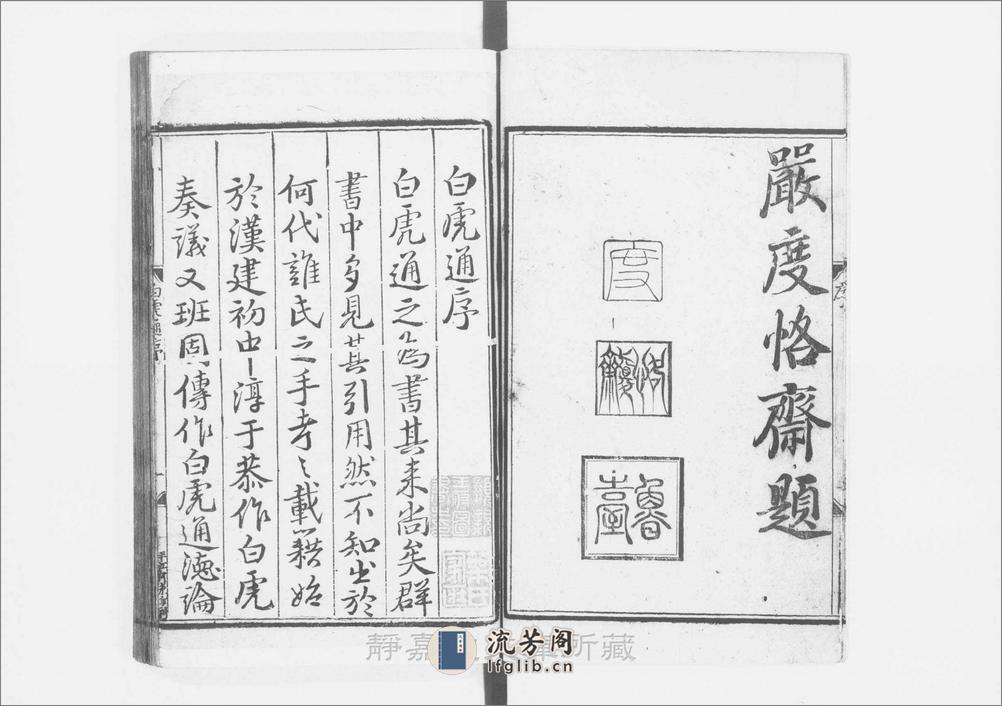 嚴度恪齋題
度
白虎通序
白虎通之為書其来尚矣群
書中多見其引用然不知出於
何代誰氏之手考之載籍始
於漢建初中淳于恭作白虎
奏議又班固傳作白虎通德論
靜嘉
所藏
流芳阁
lfglib.cn